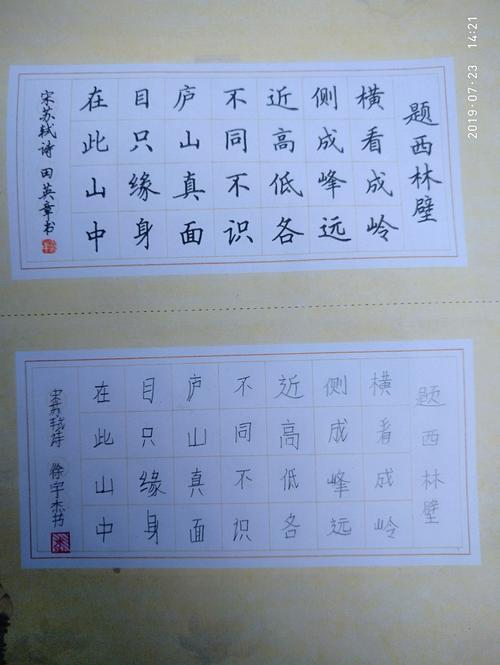 题西林壁
横看成岭
侧成峰远
近高低各
不同不识
庐山真面
目只缘身
在此山中
宋苏轼诗 田英章书
题西林壁
横看成岭
侧成峰远
近高低各
不同不识
庐山真面
目只缘身
在此山中
宋苏轼诗 徐宇杰书
2019-07-23 14:21